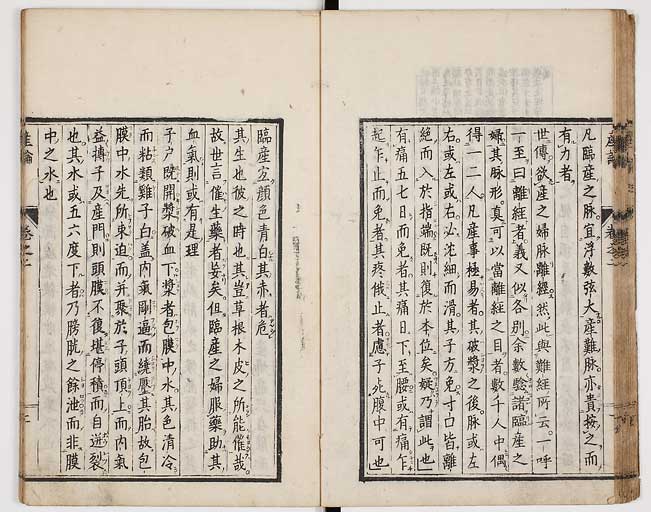 凡臨産之脉宜浮數弦大産難脉亦貴按之而
有力者
世傳欲産之婦脉離經然此與難經所云一呼
一至曰離經者義又似各別余數驗諸臨産之
婦其脉形真可以當離經之目者數千人中偶
得一二人凡産事極易者其破漿之後脉或左
右或左或右沈細而滑其子方免寸口皆離
絕而入於指端既則復於本位矣嫉乃謂此也
有痛五七日而免者其痛日下至腰或有痛乍
起乍止而免者其疼俄止者慮子死腹中可也
臨産左顏色青白其赤者危
其生也彼之時也其豈草根木皮之所能催哉
故世言催生藥者妄矣但臨産之婦服藥助其
血氣則或有是理
子户既開漿破血下漿者包膜中水其色清冷
而粘類雞子白蓋内氣剛逼而纏壓其胎故包
膜中水先所束迫而并聚於子頭頂上而内氣
益搏子及産門則頭膜不復堪停積而自迸裂
也其水或五六度下者乃膀胱之餘泄而非膜
中之水也
産論
卷之二